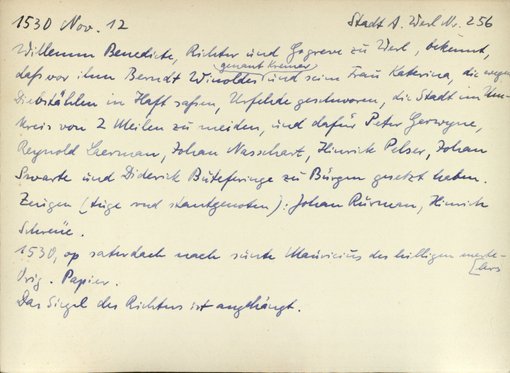 1530 Nov. 12 Stadt A. Werl Nr. 256
Willemm Benedicte, Richter und Gogreve zu Werl, bekennt,
daß vor ihm Berndt Winolds genannt Kremer und seine Frau Katerina, die wegen
Diebstählen in Haft saßen, Urfehde geschworen, die Stadt im Um-
kreis von 2 Meilen zu meiden, und dafür Peter Gerwyne,
Reynold Laerman, Johan Nasschart, Hinrick Pelser, Johan
Swarte und Diderik Buteferinge zu Bürgen gesetzt haben.
Zeugen (tuge vnd stantgenoten): Johan Rürman, Hinrich
Schreie.
1530, op saterdach nach sünte Mauricius des hilligen merte-
lers
Orig. Papier.
Das Siegel des Richters ist angehängt.